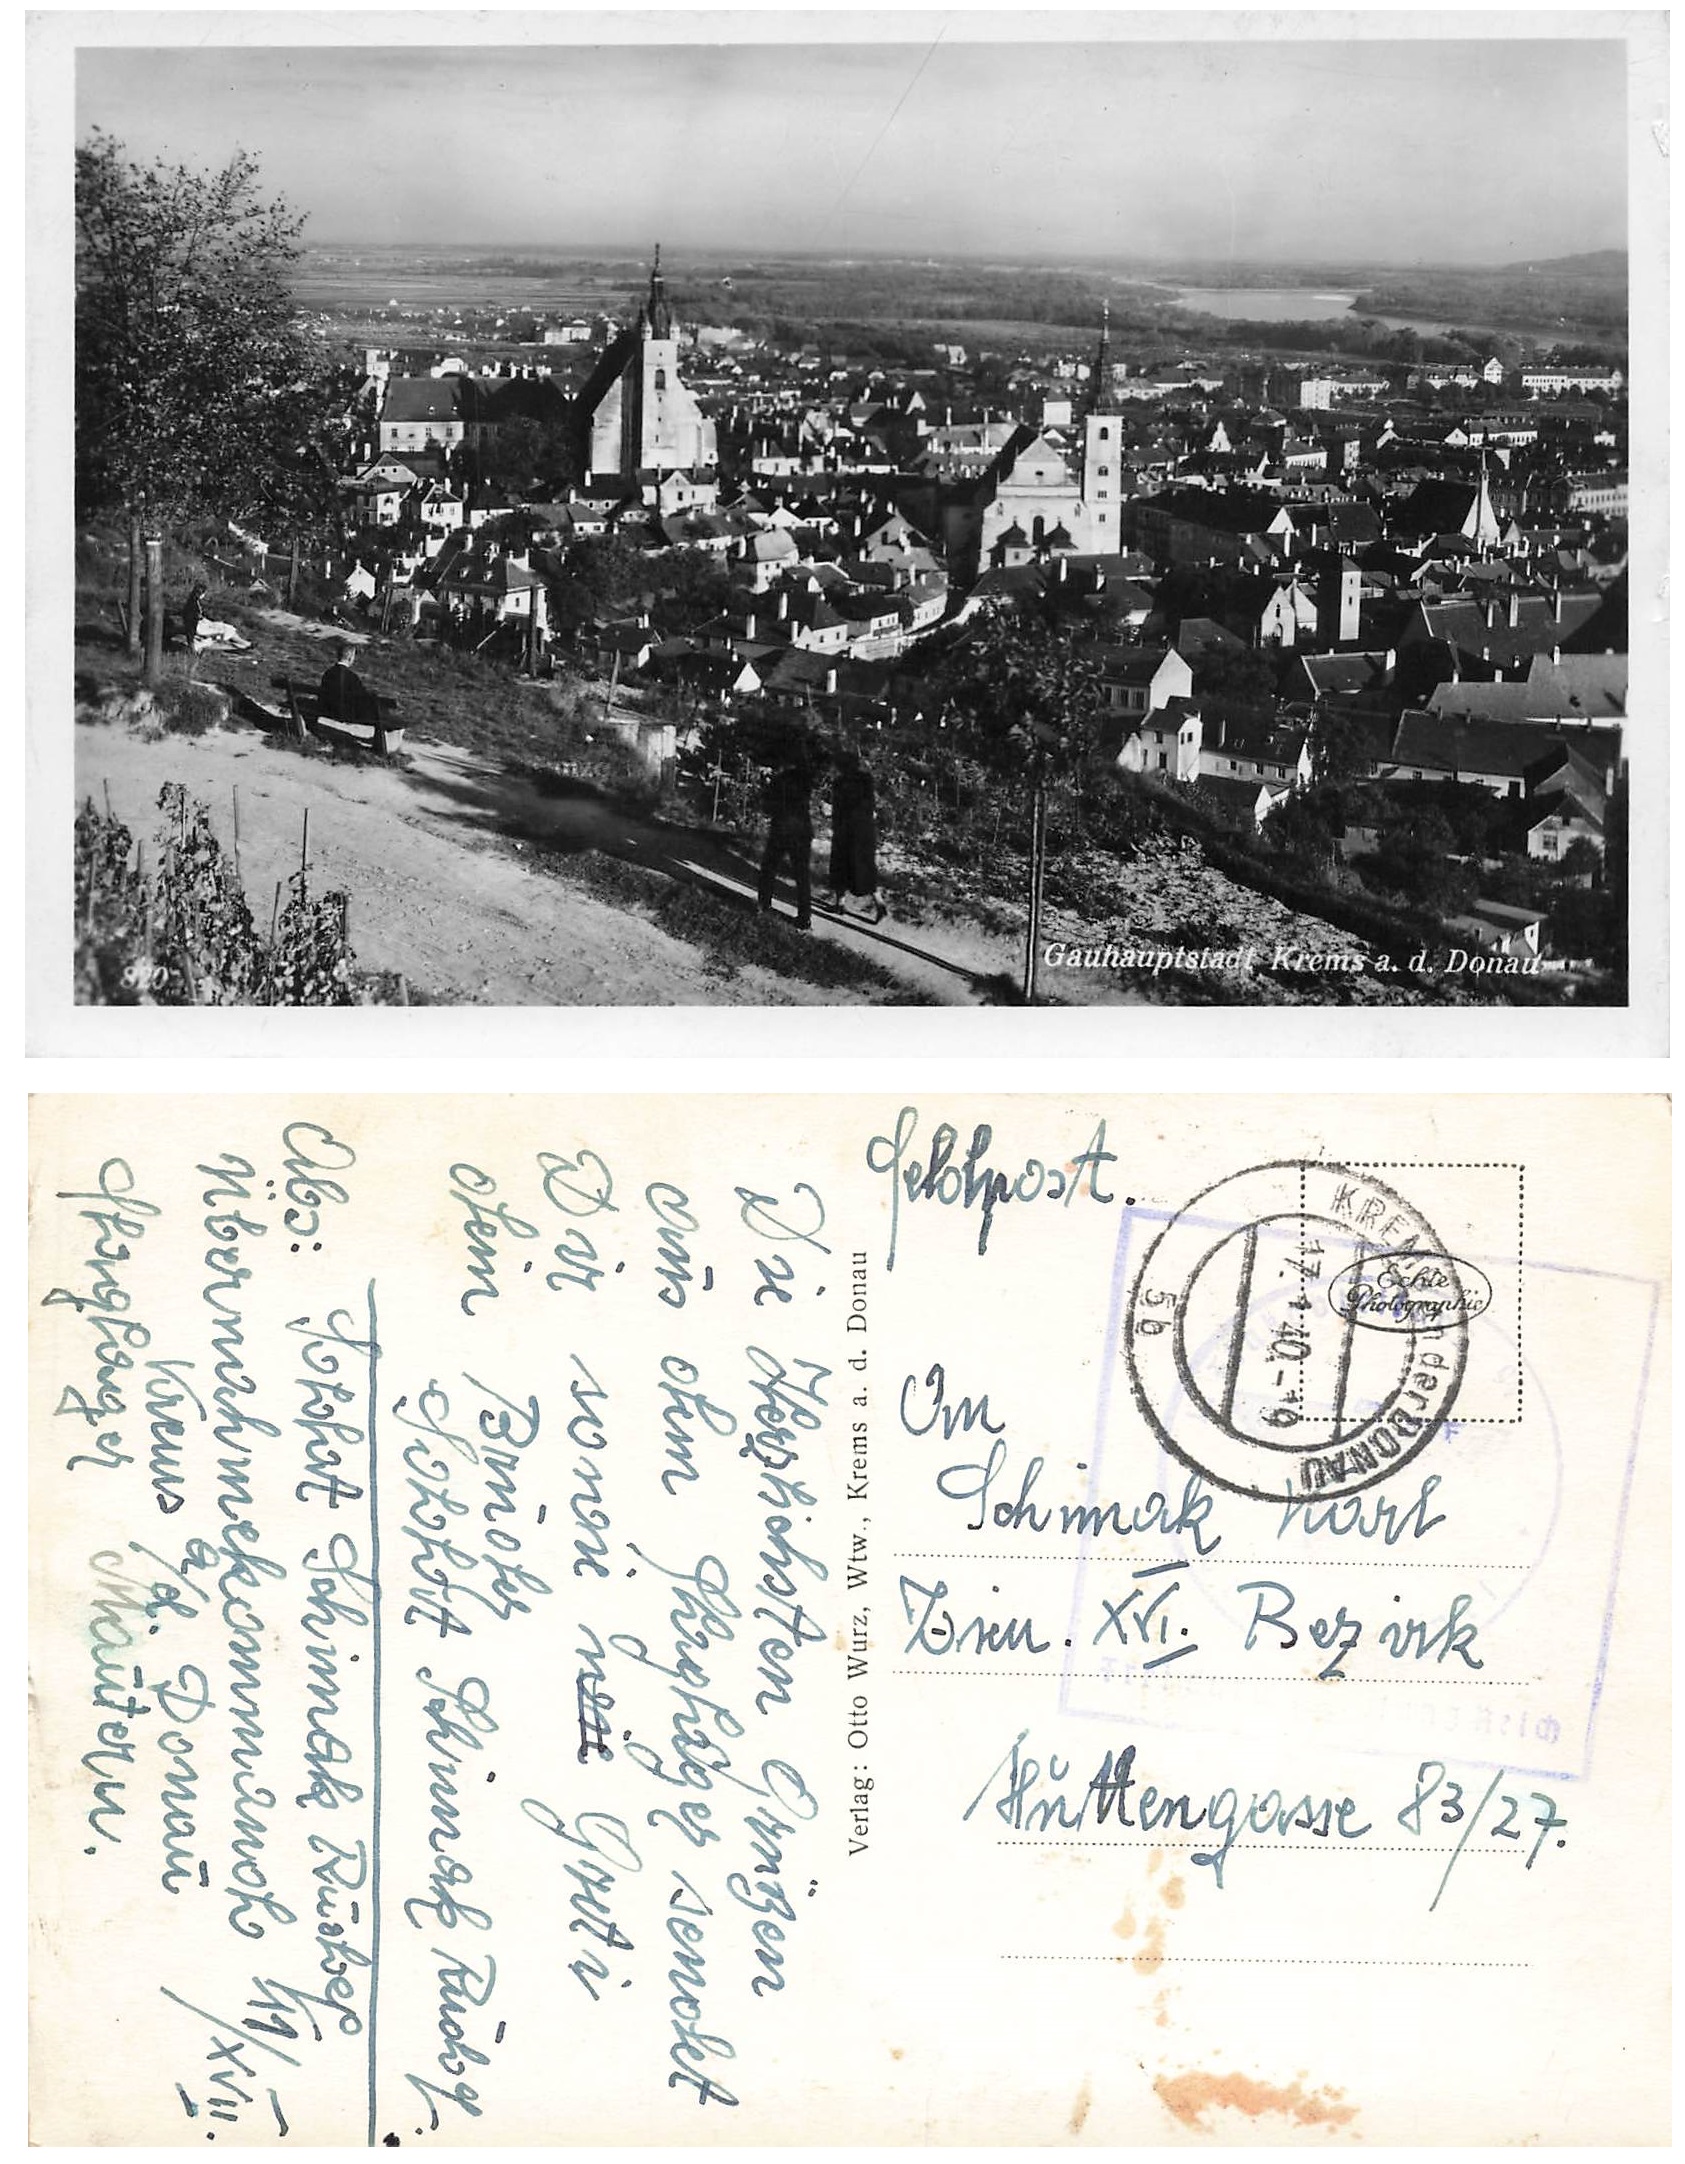 Gauhauptstadt Krems a. d. Donau
820
Feldpost.
KREMS an der DONAU
17. 1. 40. - 19
5b
Echte
Photographie
An
Schimak Karl
Wien. XVI. Bezirk
Hüttengasse 83/27.
Verlag: Otto Wurz, Wtw., Krems a. d. Donau
Die Herzlichsten Grüßen
aus dem
sendet
Dir sowie Gretti
dein Bruder
Soldat Schimak Rudolf.
Abs: Soldat Schimak Rudolf
Übernahmekommando 11/XVII.
Krems a/d. Donau
Mautern.